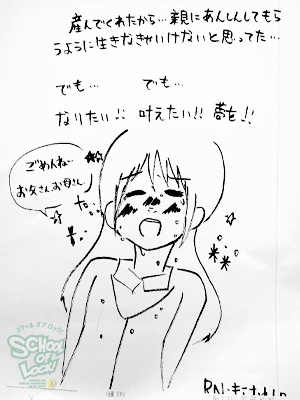 産んでくれたから…親にあんしんしてもら
うように生きなきゃいけないと思ってた…
でも… でも…
なりたい!! 叶えたい!! 夢を!!
ごめんね…
お父さんお母さん
スクール オブ ロック!
SCHOOL
OF
LOCK!